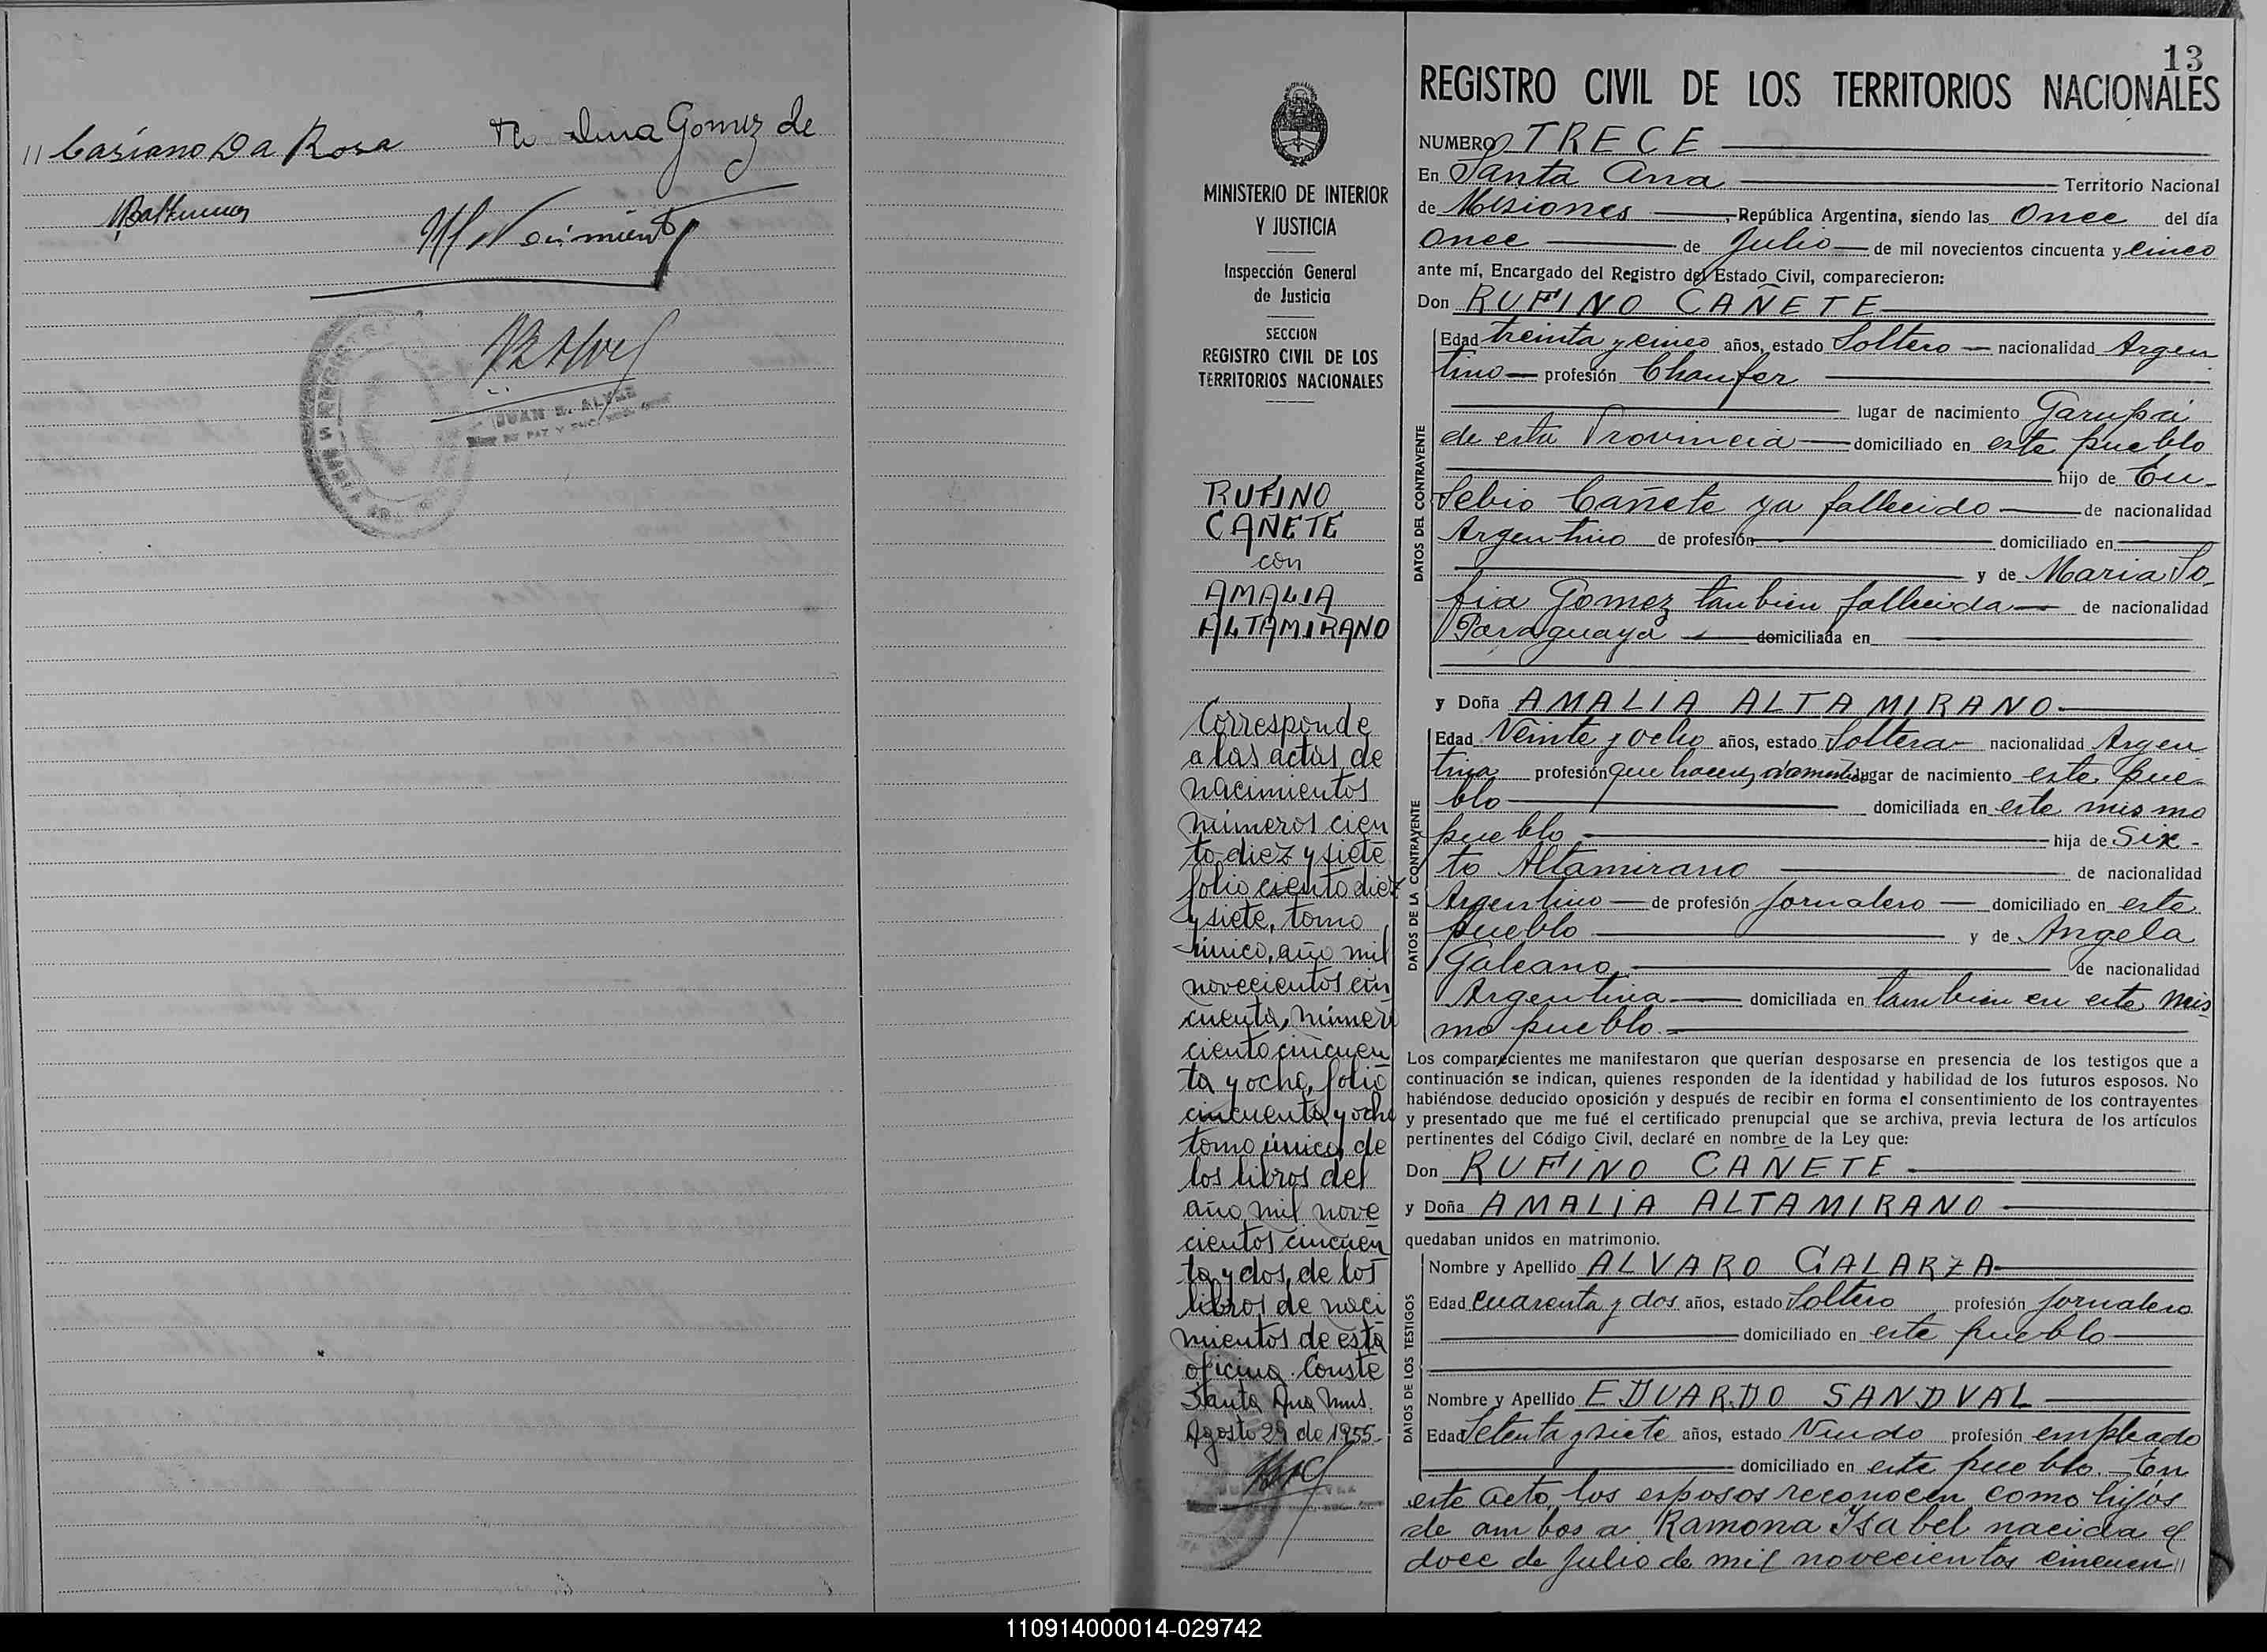 // Casiano Da Rosa
Gomez de
M Nacimiento
JUAN B. ALVES
13
REGISTRO CIVIL DE LOS TERRITORIOS NACIONALES
NUMERO TRECE
En Santa Ana Territorio Nacional
de Misiones, República Argentina, siendo las Once del día
Once de Julio de mil novecientos cincuenta y cinco
ante mí, Encargado del Registro del Estado Civil, comparecieron:
Don RUFINO CAÑETE
DATOS DEL CONTRAYENTE
Edad treinta y cinco años, estado Soltero nacionalidad Argen
tino profesión Chaufer
lugar de nacimiento Garupá
de esta Provincia domiciliado en este pueblo
hijo de Eu-
sebio Cañete ya fallecido de nacionalidad
Argentino de profesión domiciliado en
y de Maria So-
fia Gomez tanbien fallecida de nacionalidad
Paraguaya domiciliada en
y Doña AMALIA ALTAMIRANO
DATOS DE LA CONTRAYENTE
Edad Veinte y ocho años, estado Soltera nacionalidad Argen
tina profesión que haceres domest lugar de nacimiento este pue
blo domiciliada en este mismo
pueblo hija de Six-
to Altamirano de nacionalidad
Argentino de profesión Jornalero domiciliado en este
pueblo y de Angela
Galeano de nacionalidad
Argentina domiciliada en tambien en este mis
mo pueblo.
Los comparecientes me manifestaron que querían desposarse en presencia de los testigos que a
continuación se indican, quienes responden de la identidad y habilidad de los futuros esposos. No
habiéndose deducido oposición y después de recibir en forma el consentimiento de los contrayentes
y presentado que me fué el certificado prenupcial que se archiva, previa lectura de los artículos
pertinentes del Código Civil, declaré en nombre de la Ley que:
Don RUFINO CAÑETE
y Doña AMALIA ALTAMIRANO
quedaban unidos en matrimonio.
DATOS DE LOS TESTIGOS
Nombre y Apellido ALVARO GALARZA
Edad Cuarenta y dos años, estado Soltero profesión Jornalero
domiciliado en este pueblo
Nombre y Apellido EDUARDO SANDVAL
Edad Setenta y siete años, estado Viudo profesión empleado
domiciliado en este pueblo. En
este acto, los esposos reconocen como hijos
de ambos a Ramona Isabel nacida el
doce de Julio de mil novecientos cincuen//
MINISTERIO DE INTERIOR
Y JUSTICIA
Inspección General
de Justicia
SECCION
REGISTRO CIVIL DE LOS
TERRITORIOS NACIONALES
RUFINO
CAÑETE
con
AMALIA
ALTAMIRANO
Corresponde
a las actas de
nacimientos
números cien
to diez y siete
folio ciento diez
y siete, tomo
único, año mil
novecientos cin
cuenta, número
ciento cincuen
ta y ocho, folio
cincuenta y ocho
tomo único, de
los libros del
año mil nove
cientos cincuen
ta y dos, de los
libros de naci
mientos de esta
oficina. Conste
Santa Ana Mns.
Agosto 29 de 1955.
110914000014-029742